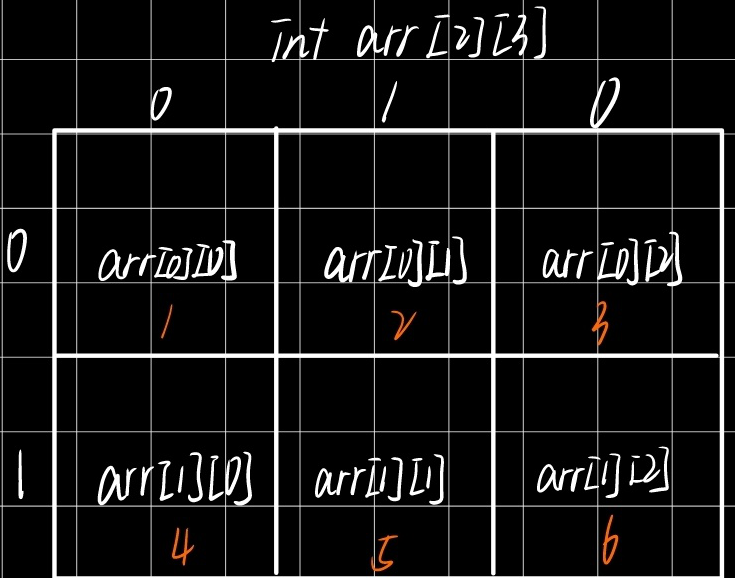 int arr[2][3]
0 1 0
0 arr[0][0] arr[0][1] arr[0][2]
1 2 3
1 arr[1][0] arr[1][1] arr[1][2]
4 5 6